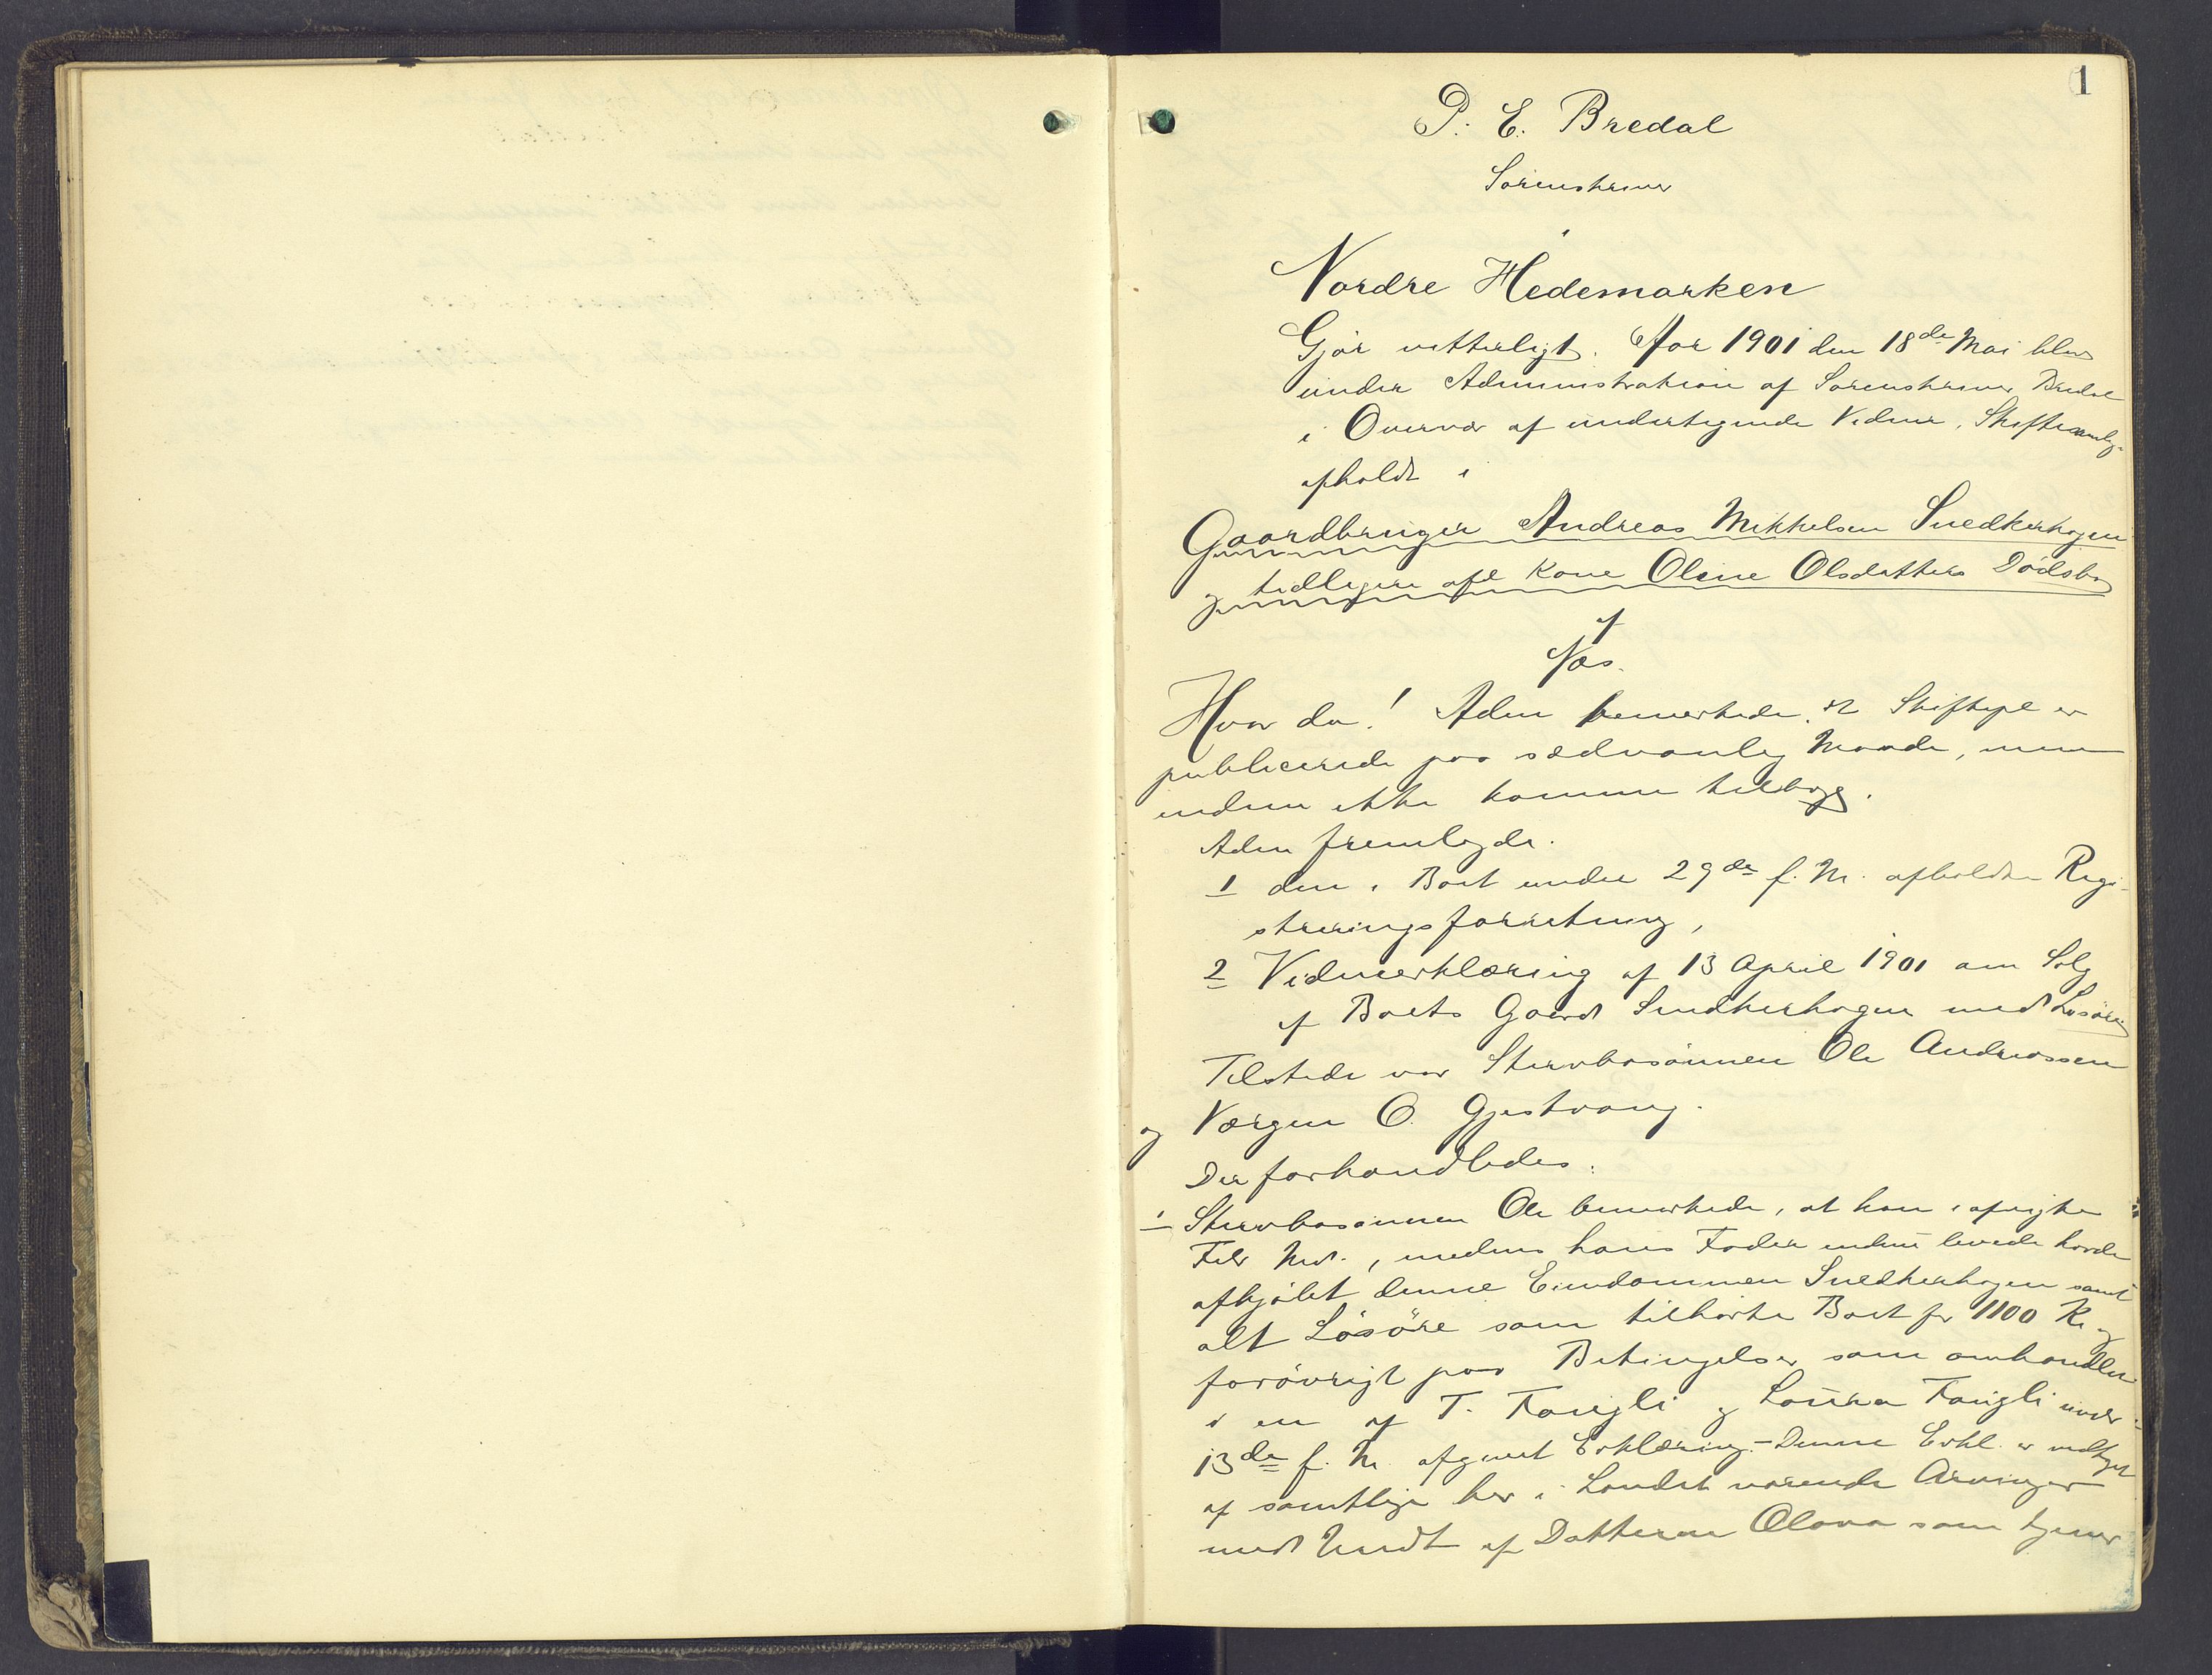 1
P. E. Bredal
Sorenskriver
i
Nordre Hedemarken
Gjør vitterligt. Aar 1901 den 18de Mai blev
under Administration af Sorenskriver Bredal
i Overvær af undertegnede Vidner, Skiftesamlg.
afholdt i
Gaardbruger Andreas Mikkelsen Snedkerhagen
og tidligere afd Kone Oline Olsdatters Dødsbo
af
Næs.
Hvor da! Adm bemerkede, at Skiftepl er
publicerede paa sædvanlig Maade, men
endnu ikke kommen tilbage.
Adm fremlagde.
1 den i Boet under 29de f. M. afholdte Regi-
streringsforretning,
2 Vidneerklæring af 13 April 1901 om Salg
af Boets Gaard Snedkerhagen med Løsøre
Tilstede var Stervbosønnen Ole Andreassen
og Værgen O. Gjestvang.
Der forhandledes:
1 Stervbosønnen Ole bemerkede, at han i afvigte
Febr Md., medens hans Fader endnu levede havde
afkjøbt denne Eiendommen Snedkerhagen samt
alt Løsøre som tilhørte Boet for 1100 Kr og
forøvrigt paa Betingelser som omhandlet
i en af T. Fangli og Laura Fangli under
13de f. M. afgivet Erklæring. - Denne Erkl. er vedtaget
af samtlige her i Landet værende Arvinger
med Undt af Datteren Olava som tjener